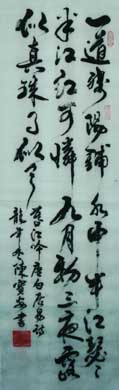 一道残陽鋪水中半江瑟瑟
半江红可憐九月初三夜露
似真珠月似弓
暮江吟唐白居易詩
龍年冬陳寶安書